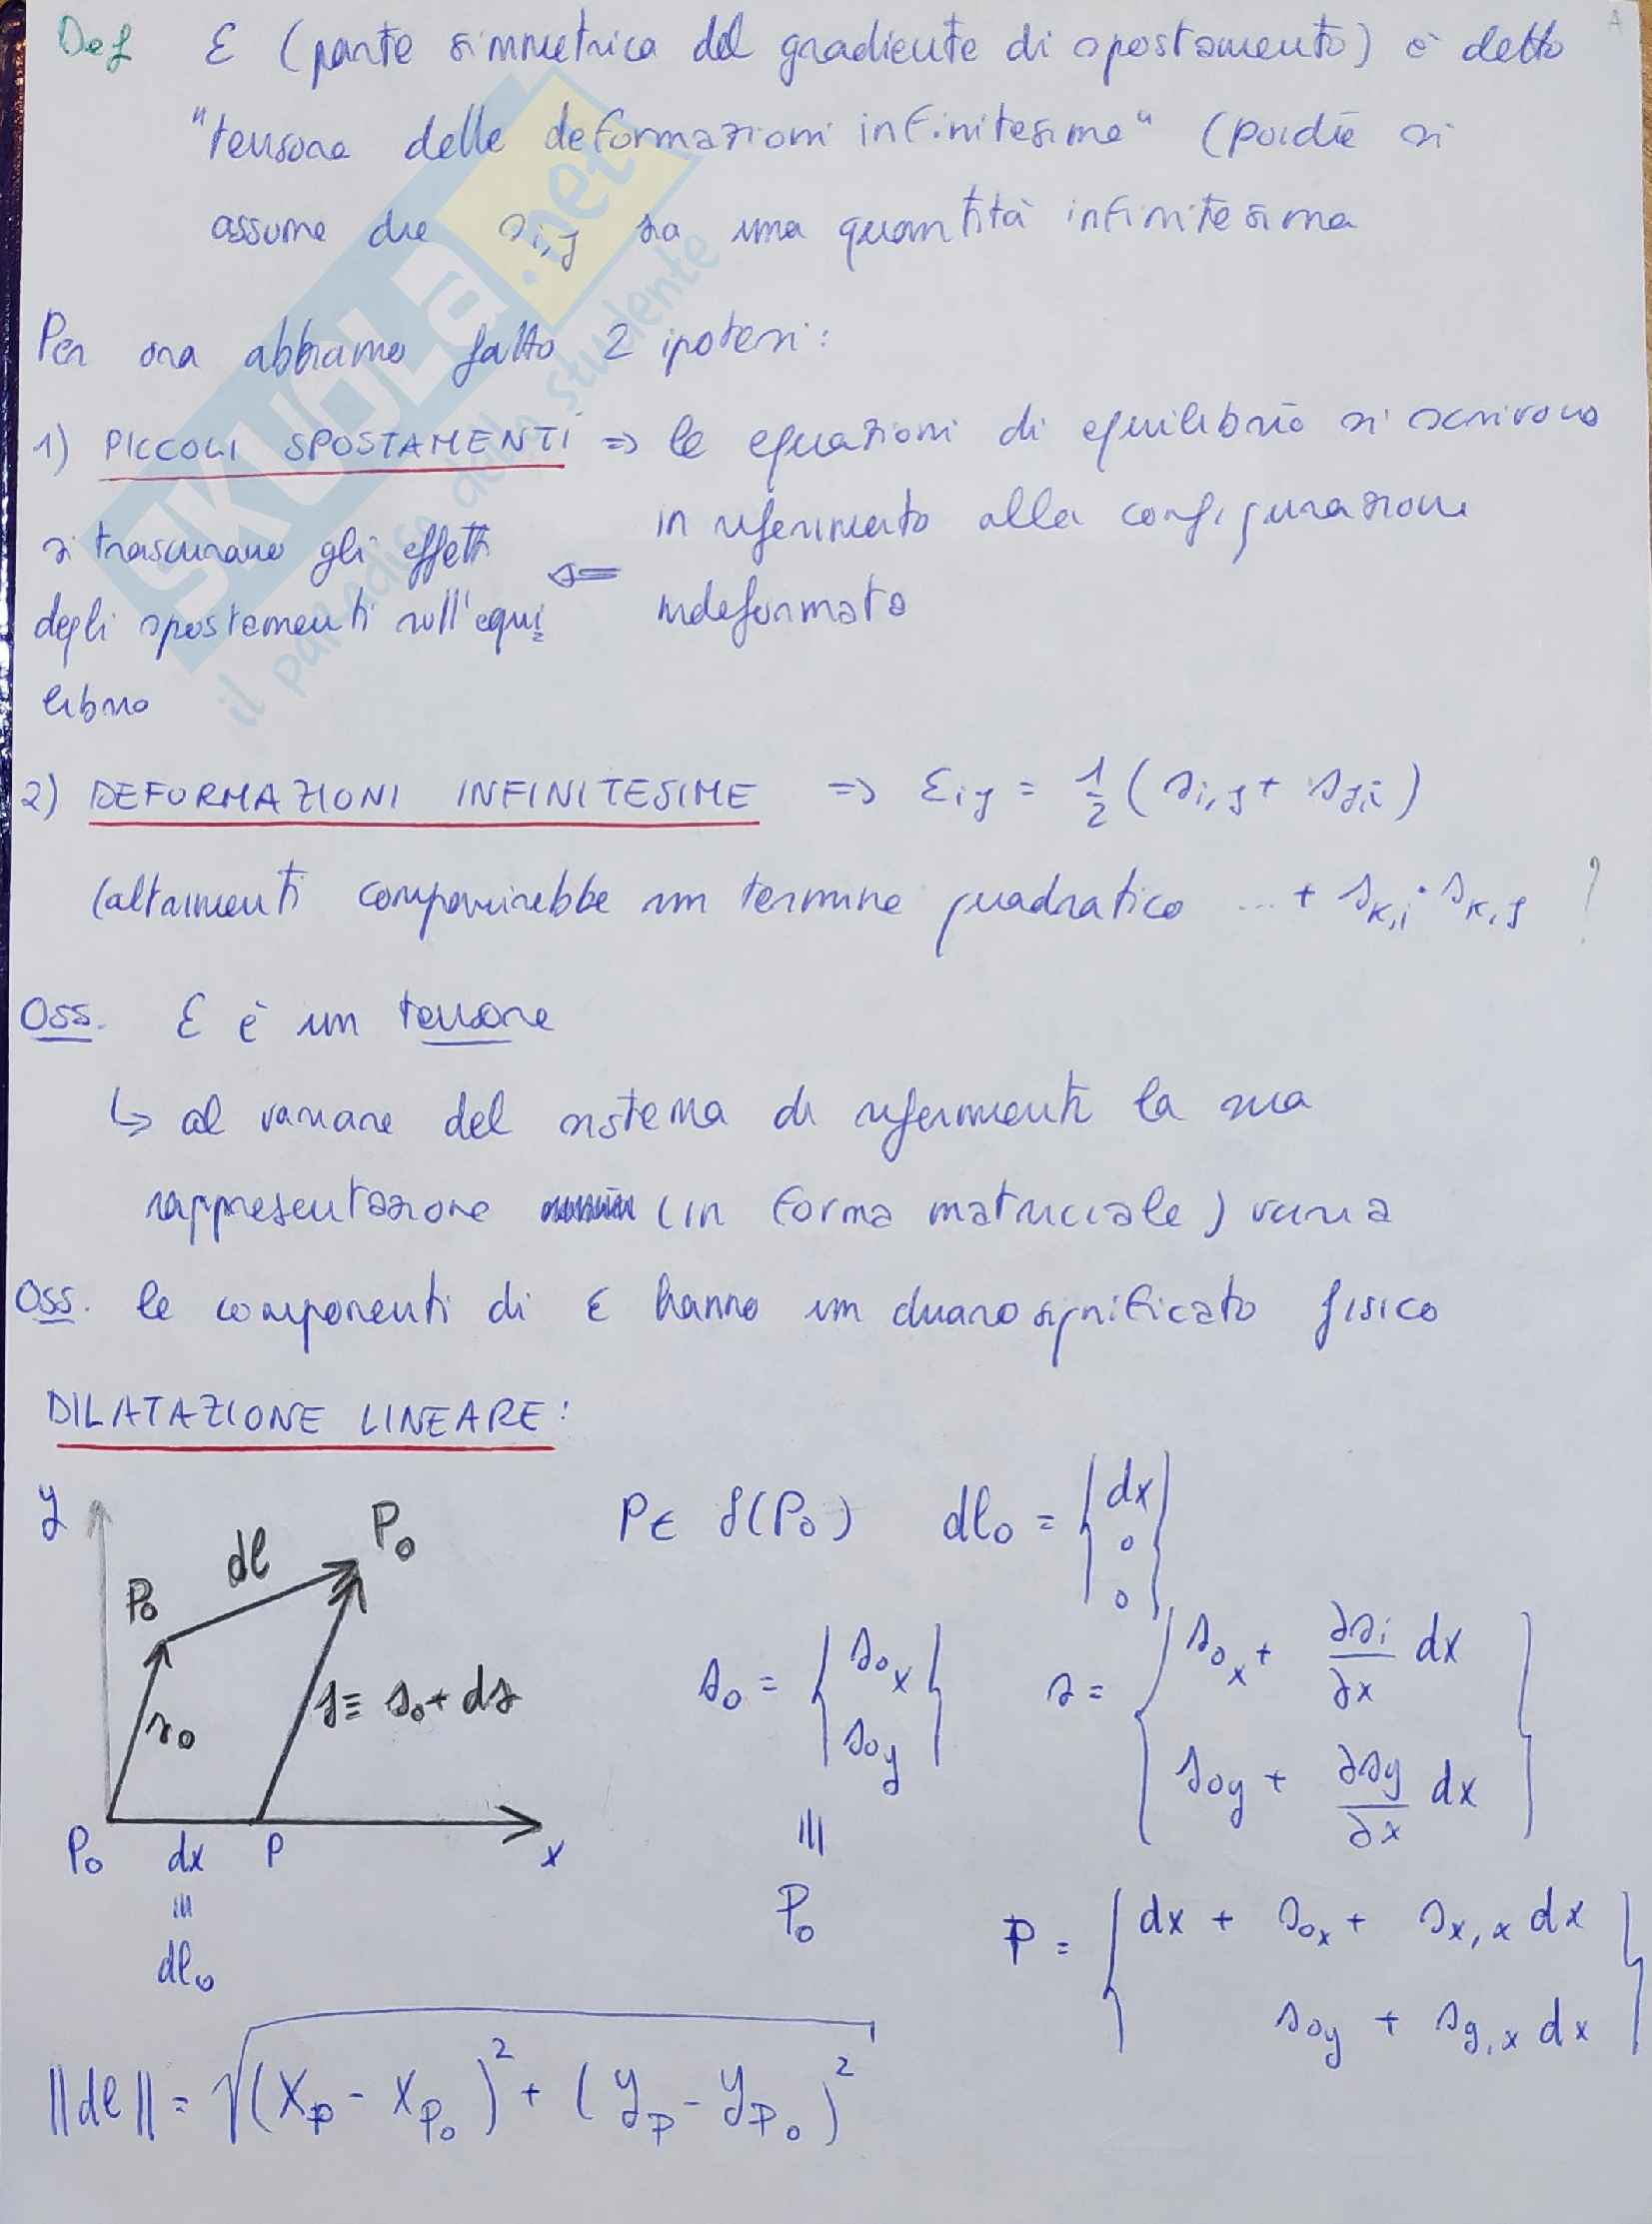 Def ε (parte simmetrica del gradiente di spostamento) è detto
"tensore delle deformazioni infinitesime" (poiché si
assume che s_i,j sia una quantità infinitesima
Per ora abbiamo fatto 2 ipotesi:
1) PICCOLI SPOSTAMENTI => le equazioni di equilibrio si scrivono
in riferimento alla configurazione
indeformata
<=
si trascurano gli effetti
degli spostamenti sull'equi
librio
2) DEFORMAZIONI INFINITESIME => ε_ij = 1/2 (s_i,j + s_j,i)
(altrimenti comparirebbe un termine quadratico ... + s_k,i · s_k,j ?
Oss. ε è un tensore
↳ al variare del sistema di riferimenti la sua
rappresentazione (in forma matriciale) varia
Oss. le componenti di ε hanno un chiaro significato fisico
DILATAZIONE LINEARE:
y
P_0 dl P_0
s_0
s ≡ s_0 + ds
P_0 dx P x
≡
dl_0
P ∈ S(P_0) dl_0 = {dx 0 0}
s_0 = {s_0x s_0y}
≡
P_0
s = {s_0x + ∂s_i/∂x dx
s_0y + ∂s_y/∂x dx}
P = {dx + s_0x + s_x,x dx
s_0y + s_y,x dx}
||dl|| = √(x_P - x_P_0)² + (y_P - y_P_0)²
SKUOLA.net
il paradiso dello studente